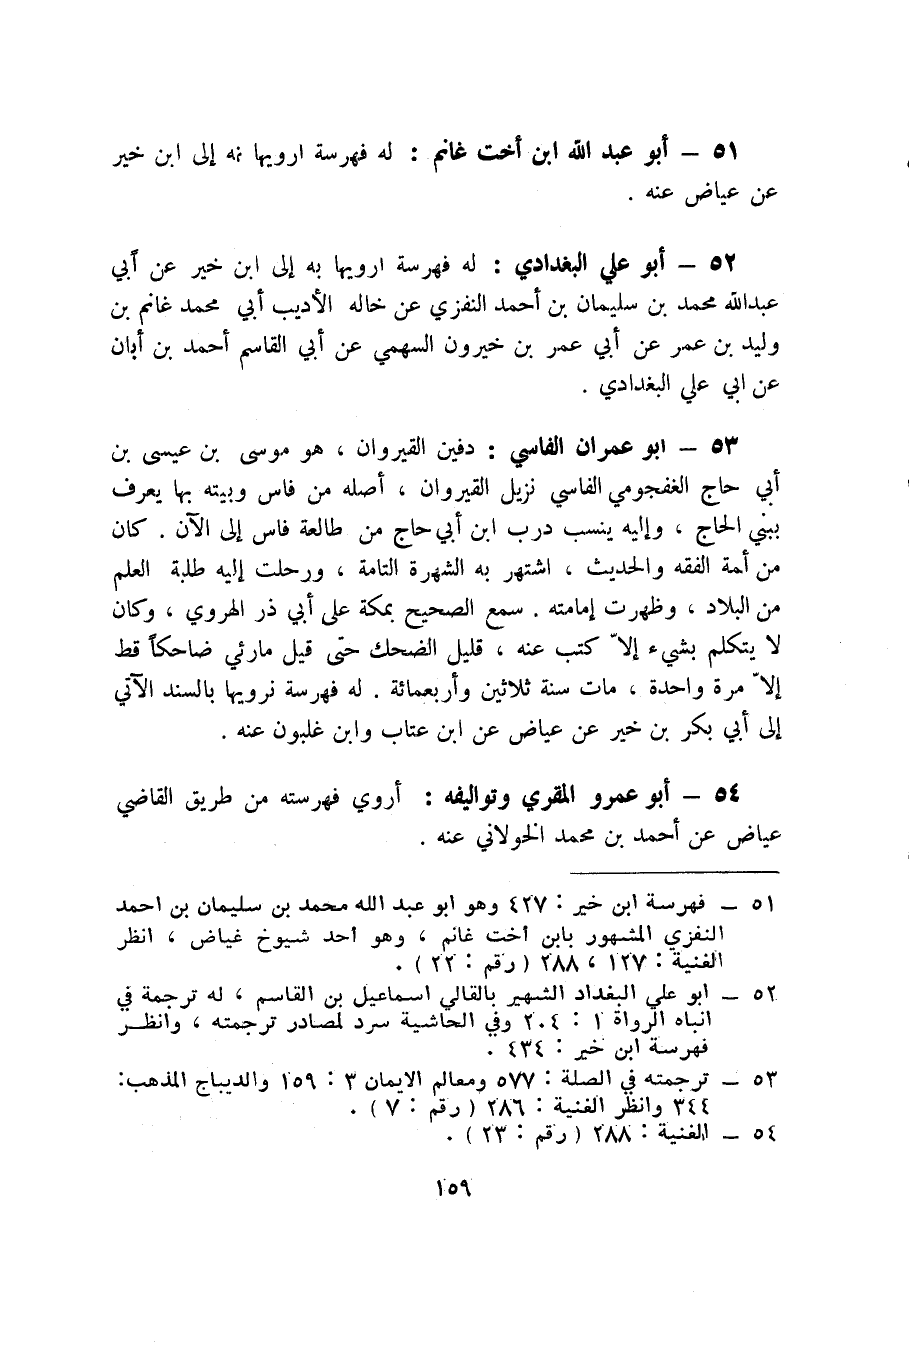 ٥١ – أبو عبد الله ابن أخت غانم : له فهرسة ارويها نه إلى ابن خير
عن عياض عنه .
٥٢ – أبو علي البغدادي : له فهرسة ارويها به إلى ابن خير عن أبي
عبدالله محمد بن سليمان بن أحمد النفزي عن خاله الأديب أبي محمد غانم بن
وليد بن عمر عن أبي عمر بن خيرون السهمي عن أبي القاسم أحمد بن أبان
عن ابي علي البغدادي .
٥٣ – ابو عمران الفاسي : دفين القيروان ، هو موسى بن عيسى بن
أبي حاج الغفجومي الفاسي نزيل القيروان ، أصله من فاس وبيته بها يعرف
ببني الحاج ، وإليه ينسب درب ابن أبي حاج من طالعة فاس إلى الآن . كان
من أئمة الفقه والحديث ، اشتهر به الشهرة التامة ، ورحلت إليه طلبة العلم
من البلاد ، وظهرت إمامته . سمع الصحيح بمكة على أبي ذر الهروي ، وكان
لا يتكلم بشيء إلاّ كتب عنه ، قليل الضحك حتى قيل مارئي ضاحكاً قط
إلاّ مرة واحدة ، مات سنة ثلاثين وأربعمائة . له فهرسة نرويها بالسند الآتي
إلى أبي بكر بن خير عن عياض عن ابن عتاب وابن غلبون عنه .
٥٤ – أبو عمرو المقري وتواليفه : أروي فهرسته من طريق القاضي
عياض عن أحمد بن محمد الخولاني عنه .
٥١ – فهرسة ابن خير : ٤٢٧ وهو ابو عبد الله محمد بن سليمان بن احمد
النفزي المشهور بابن أخت غانم ، وهو أحد شيوخ غياض ، انظر
الغنية : ١٢٧ ، ٢٨٨ ( رقم : ٢٢ ) .
٥٢ – ابو علي البغداد الشهير بالقالي اسماعيل بن القاسم ، له ترجمة في
انباه الرواة ١ : ٢٠٤ وفي الحاشية سرد لمصادر ترجمته ، وانظر
فهرسة ابن خير : ٤٣٤ .
٥٣ – ترجمته في الصلة : ٥٧٧ ومعالم الايمان ٣ : ١٥٩ والديباج المذهب:
٣٤٤ وانظر الغنية : ٢٨٦ ( رقم : ٧ ) .
٥٤ – الغنية : ٢٨٨ ( رقم : ٢٣ ) .
١٥٩